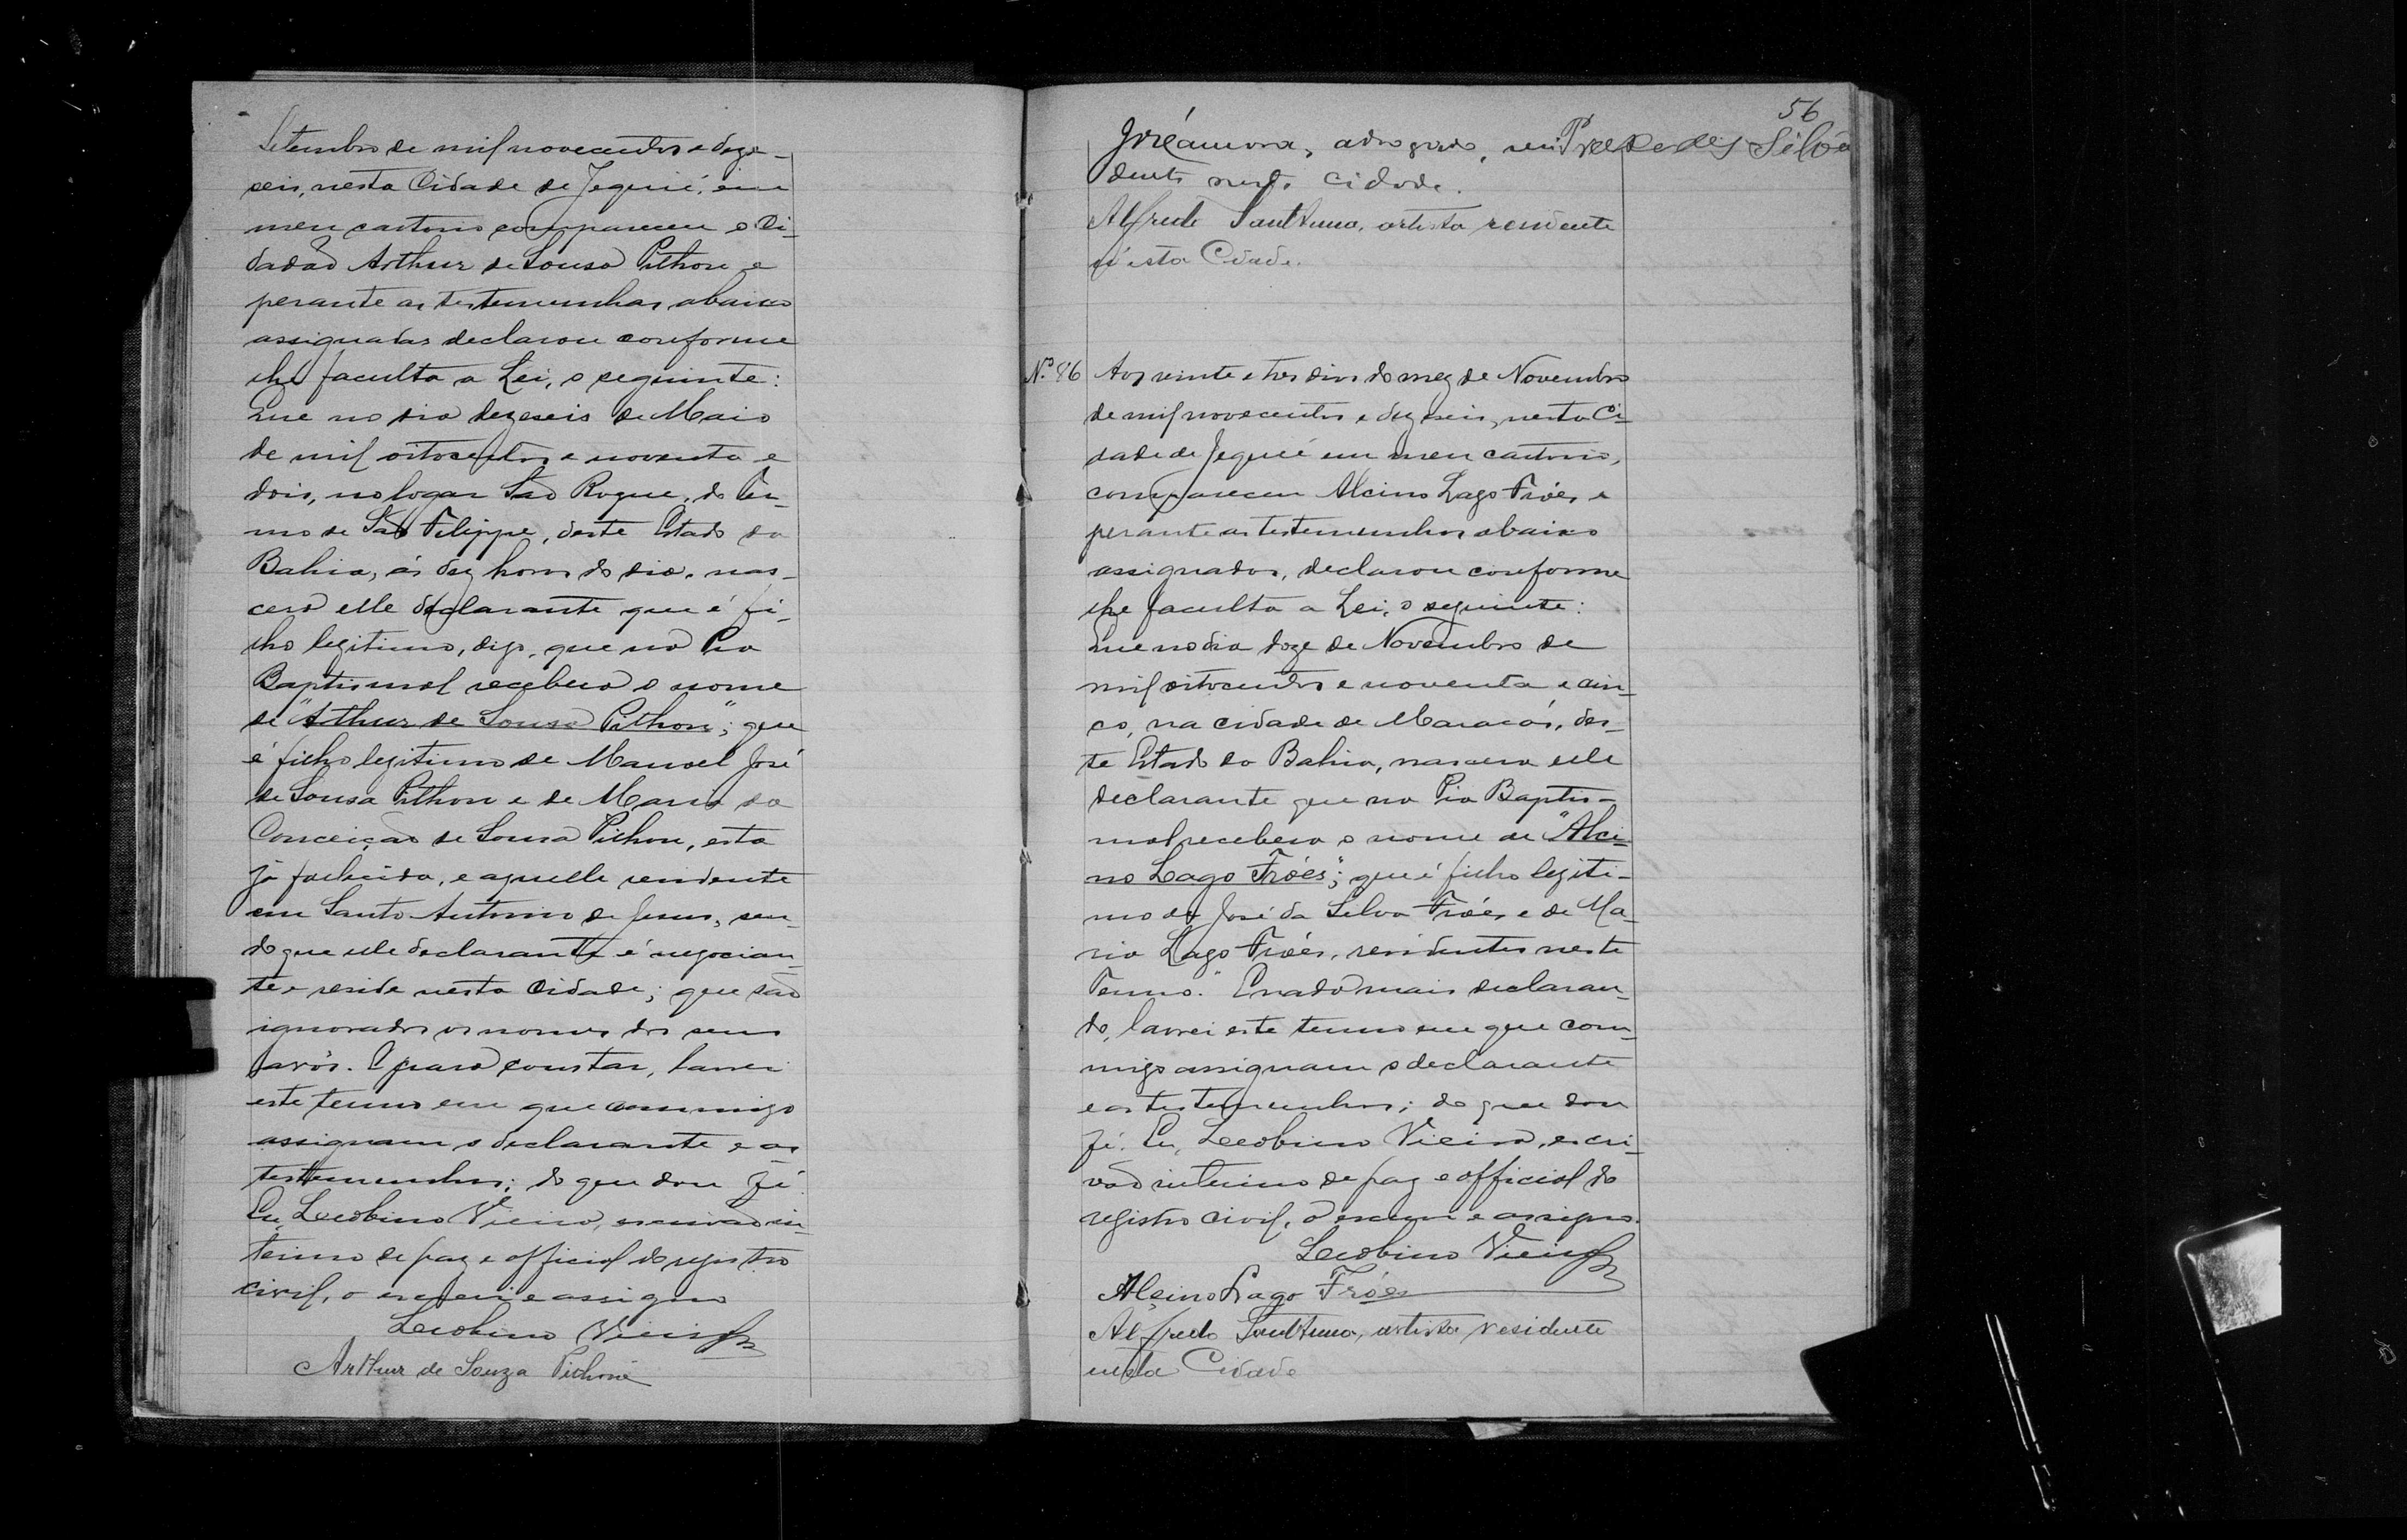 Setembro de mil novecentos e deze-
seis, nesta Cidade de Jequié, em
meu cartorio compareceu o Ci-
dadão Arthur de Sousa Pithon e
perante as testemunhas abaixo
assignadas declarou conforme
lhe faculta a Lei, o seguinte:
Que no dia dezeseis de Maio
de mil oitocentos e noventa e
dois, no logar São Roque, do Ter-
mo de São Filippe, deste Estado da
Bahia, ás dez horas do dia, nas-
cera elle declarante que é fi-
lho legitimo, digo, que na Pia
Baptismal recebera o nome
de "Arthur de Sousa Pithon"; que
é filho legitimo de Manoel José
de Sousa Pithon e de Maria da
Conceição de Sousa Pithon, esta
já fallecida, e aquelle residente
em Santo Antonio de Jesus, sen-
do que elle declarante é negocian-
te e reside nesta Cidade; que são
ignorados os nomes dos seus
avós. E para constar, lavrei
este termo em que commigo
assignam o declarante e as
testemunhas; do que dou fé.
Eu, Lecobino Vieira, escrivão in-
terino de paz e official do registro
civil, o escrevi e assigno
Lecobino Vieira
Arthur de Souza Pithon
56
José, advogado, resi-
dente nesta cidade.
Alfredo Sant'Anna, artista residente
n'esta Cidade.
Nº 86
Aos vinte e tres dias do mez de Novembro
de mil novecentos e dezeseis, nesta Ci-
dade de Jequié em meu cartorio,
compareceu Alcino Lago Fróes e
perante as testemunhas abaixo
assignadas, declarou conforme
lhe faculta a Lei, o seguinte:
Que no dia doze de Novembro de
mil oitocentos e noventa e cin-
co, na cidade de Maracás, des-
te Estado da Bahia, nascera elle
declarante que na Pia Baptis-
mal recebera o nome de "Alci-
no Lago Fróes"; que é filho legiti-
mo de José da Silva Fróes e de Ma-
ria Lago Fróes, residentes neste
Termo. E nada mais declaran-
do, lavrei este termo em que com-
migo assignam o declarante
e as testemunhas; do que dou
fé. Eu, Lecobino Vieira, escri-
vão interino de paz e official do
registro civil, o escrevi e assigno.
Lecobino Vieira
Alcino Lago Fróes
Alfredo Sant'Anna, artista residente
nesta Cidade